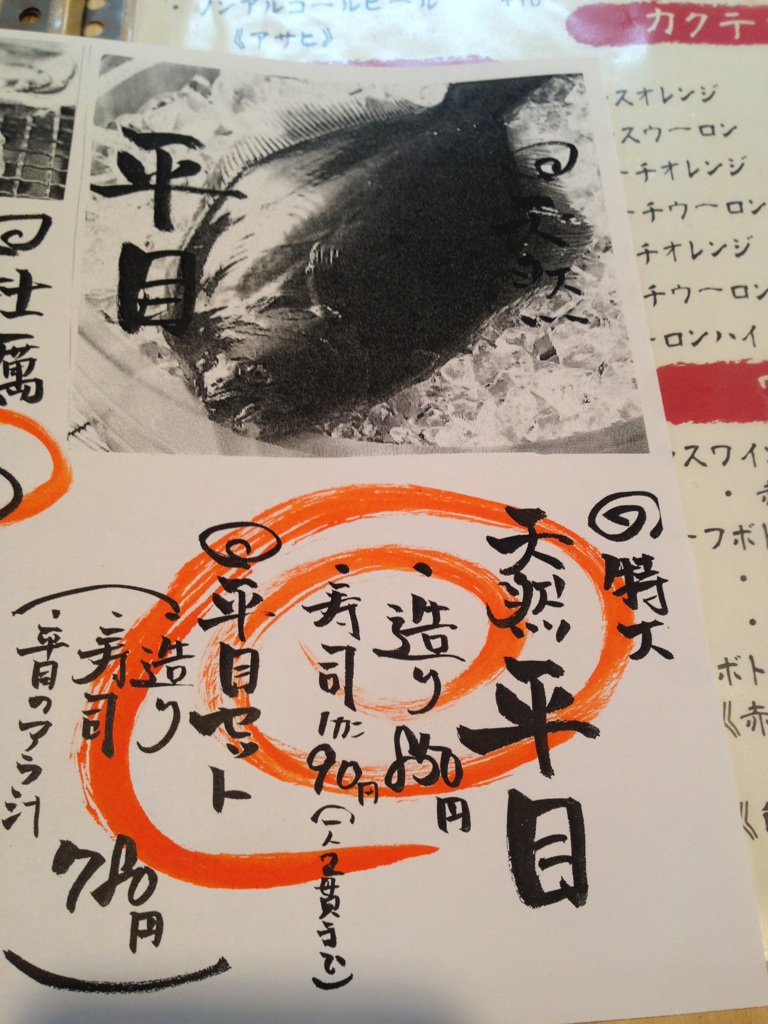 ・ノンアルコールビール
《アサヒ》
カクテ
スオレンジ
スウーロン
ーチオレンジ
ーチウーロン
チオレンジ
チウーロン
ーロンハイ
スワイン
・赤
ーフボト
ボト
《赤
天然
平目
牡蠣
特大
天然平目
・造り 850円
・寿司 1カン 90円(一人2貫まで)
平目セット
・造り
・寿司
・平目のアラ汁
780円